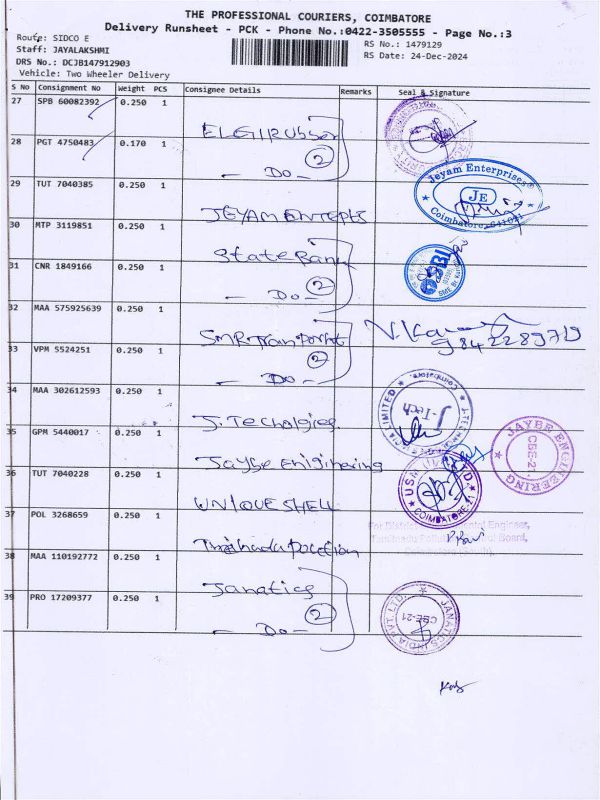 THE PROFESSIONAL COURIERS, COIMBATORE
Delivery Runsheet - PCK - Phone No.:0422-3505555 - Page No.:3
Route: SIDCO E
Staff: JAYALAKSHMI
DRS No.: DCJB147912903
Vehicle: Two Wheeler Delivery
RS No.: 1479129
RS Date: 24-Dec-2024
S No Consignment No Weight PCS Consignee Details Remarks Seal & Signature
27 SPB 60082392 0.250 1
ELGI Rubber
28 PGT 4750483 0.170 1
2
- Do -
29 TUT 7040385 0.250 1
Jeyam Enterprises
JE
Coimbatore
JEYAM
30 MTP 3119851 0.250 1
State Bank
31 CNR 1849166 0.250 1
SBI
2
- Do -
32 MAA 575925639 0.250 1
SMR Transport
9842289719
33 VPM 5524251 0.250 1
2
- Do -
34 MAA 302612593 0.250 1
J-Tech
J. Techolgies
35 GPM 5440017 0.250 1
Jaybe Enigineering
JAYBE ENGINEERING
CBE-21
36 TUT 7040228 0.250 1
COIMBATORE-21
UNIQUE SHELL
37 POL 3268659 0.250 1
38 MAA 110192772 0.250 1
Janatics
39 PRO 17209377 0.250 1
2
- Do -
JANATICS INDIA PVT. LTD.
CBE-21